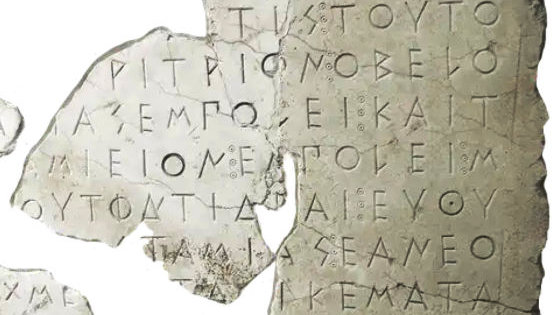 ΤΙΣ⋮ΤΟΥΤΟ
ΡΙΤΡΙΟΝΟΒΕΛΟ
ΙΑΣΕΜΠΟΛΕΙ⋮ΚΑΙΤ
ΑΜΙΕΙΟΝ⋮ΕΜΠΟΛΕΙ⋮Μ
ΟΥΤΟΝΤΙΔΡΑΙ⋮ΕΥΘΥ
ΤΑΜΙΑΣ⋮ΕΑΝΕΟ
ΧΜΕ ΤΑ ΙΚΕΜΑΤΑ